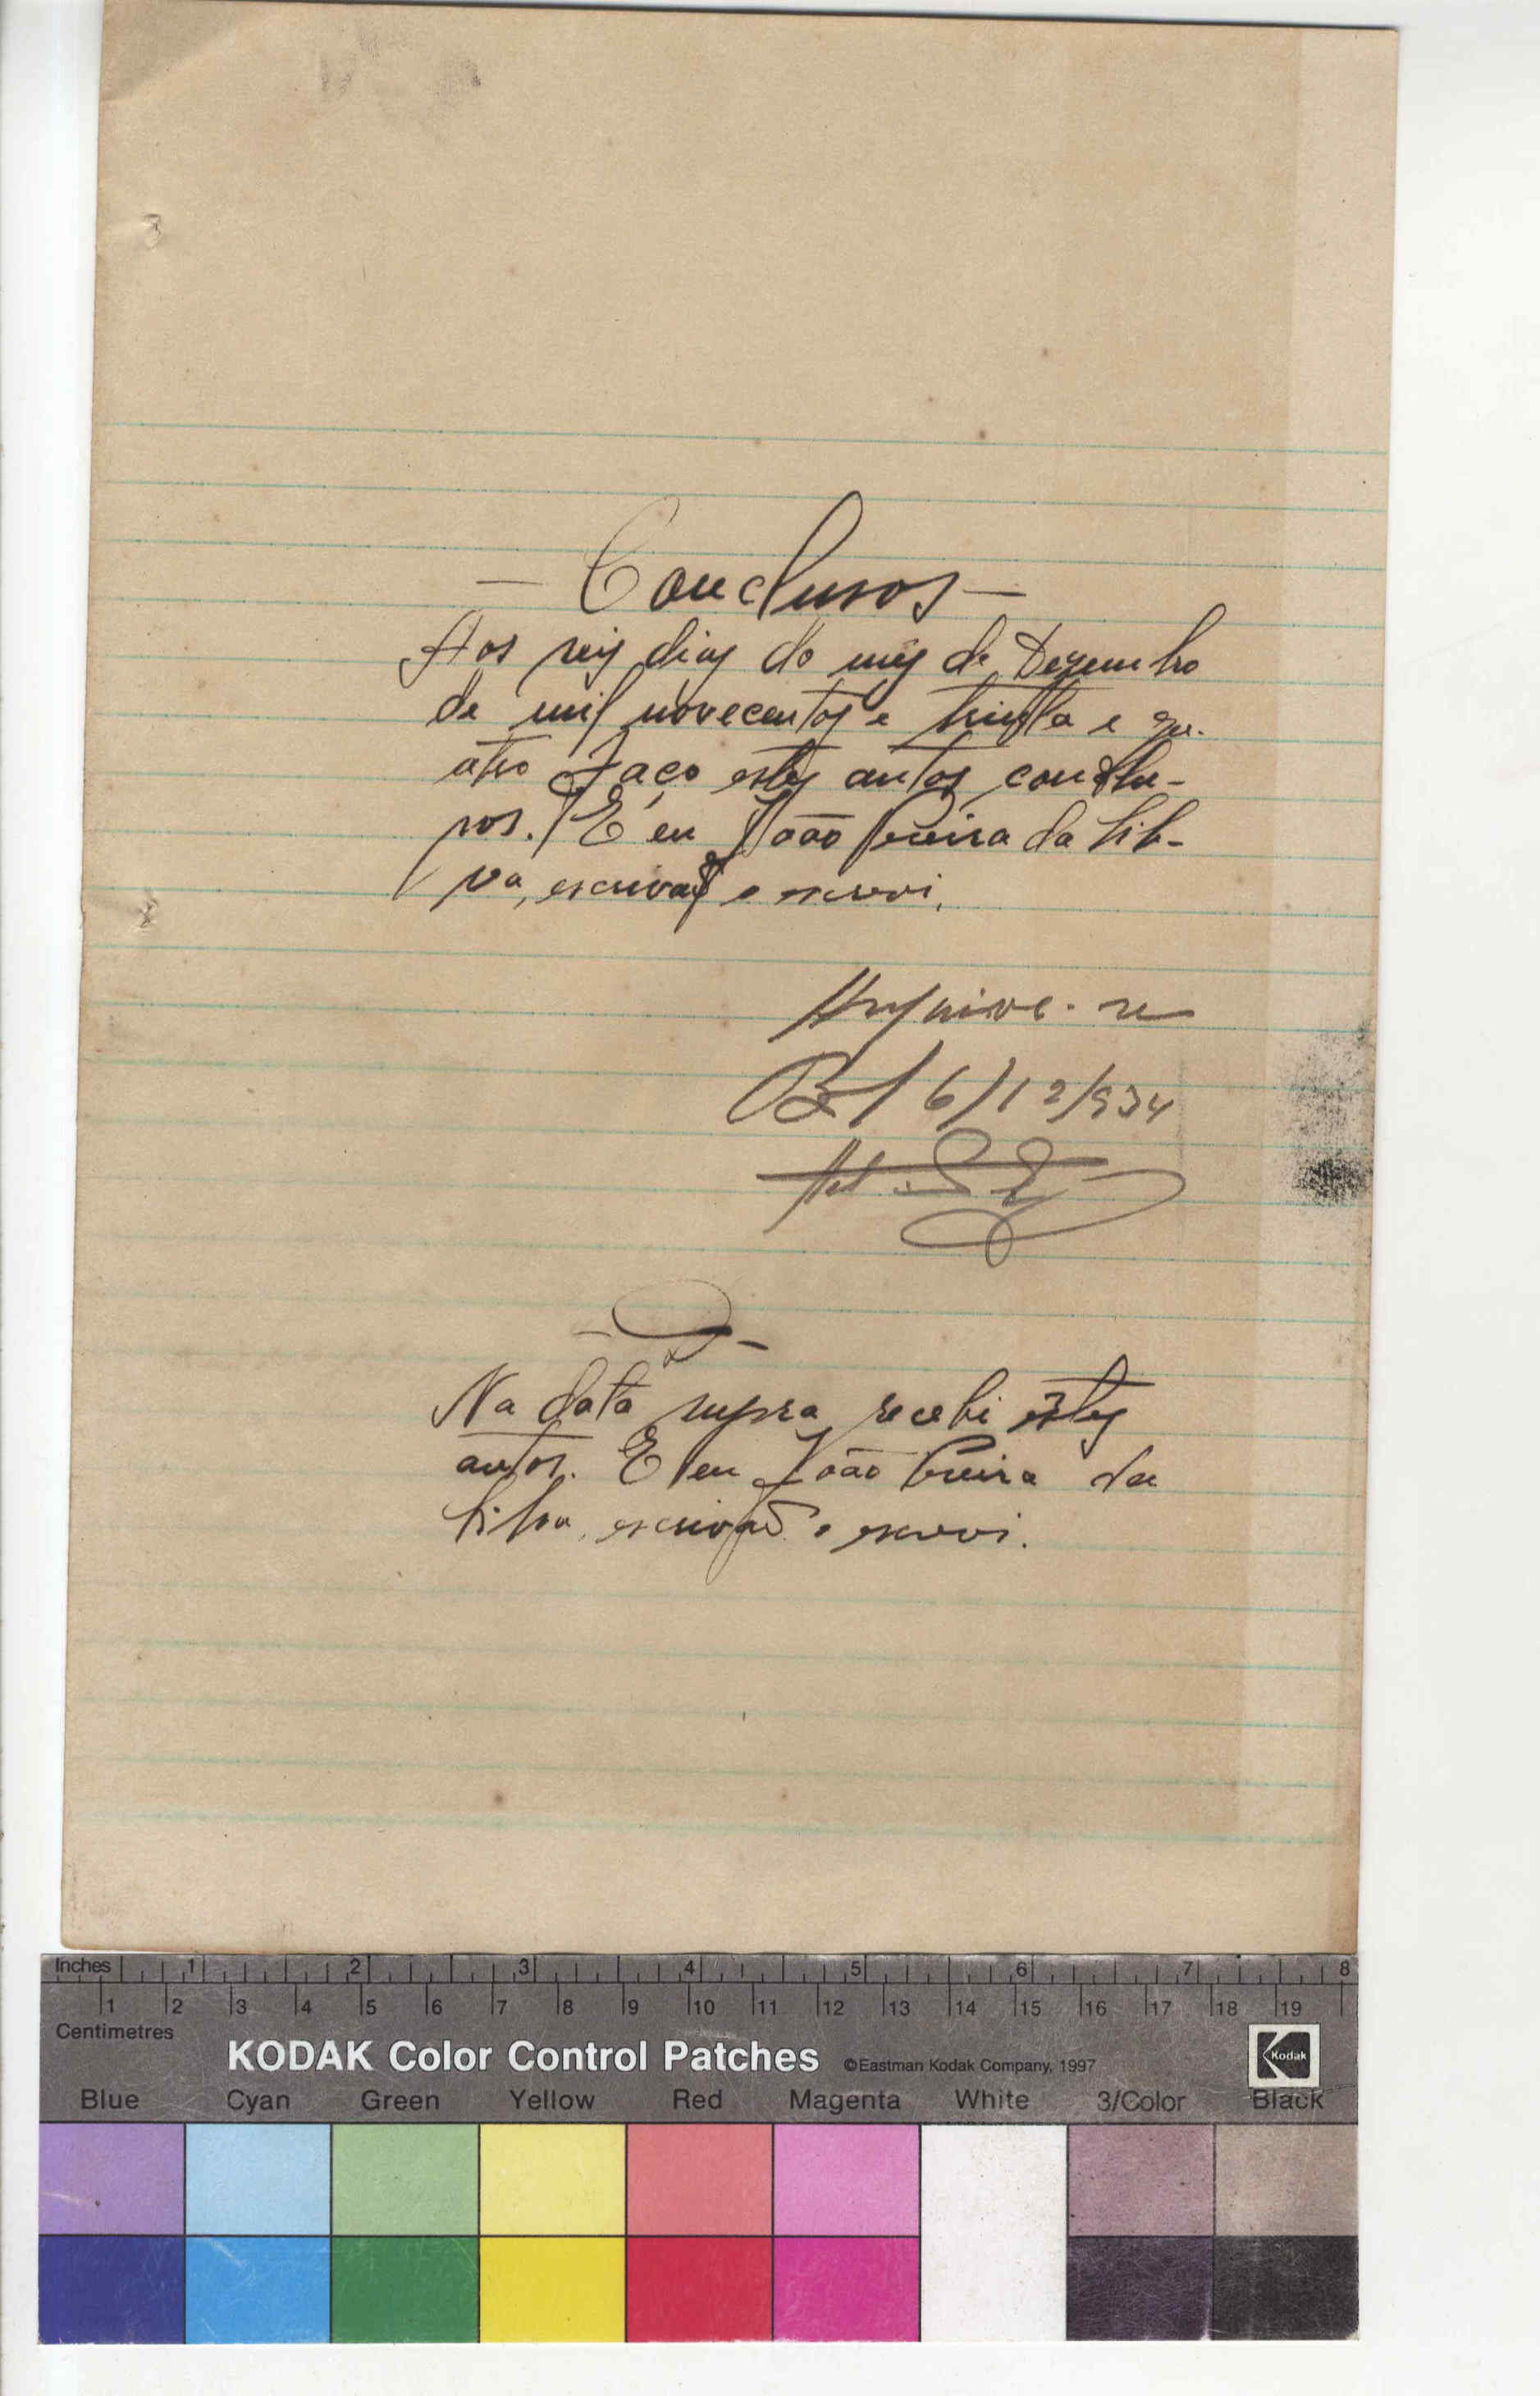 — Conclusos —
Aos seis dias do mês de Dezembro
de mil novecentos e trinta e qu-
atro faço estes autos conclu-
sos. E eu João Pereira da Sil-
va, escrivão o escrevi.
Archive-se
6/12/934
Na data supra recebi estes
autos. E eu João Pereira da
Silva, escrivão o escrevi.
Inches 1 2 3 4 5 6 7 8
1 2 3 4 5 6 7 8 9 10 11 12 13 14 15 16 17 18 19
Centimetres
KODAK Color Control Patches ©Eastman Kodak Company, 1997 Kodak
Blue Cyan Green Yellow Red Magenta White 3/Color Black